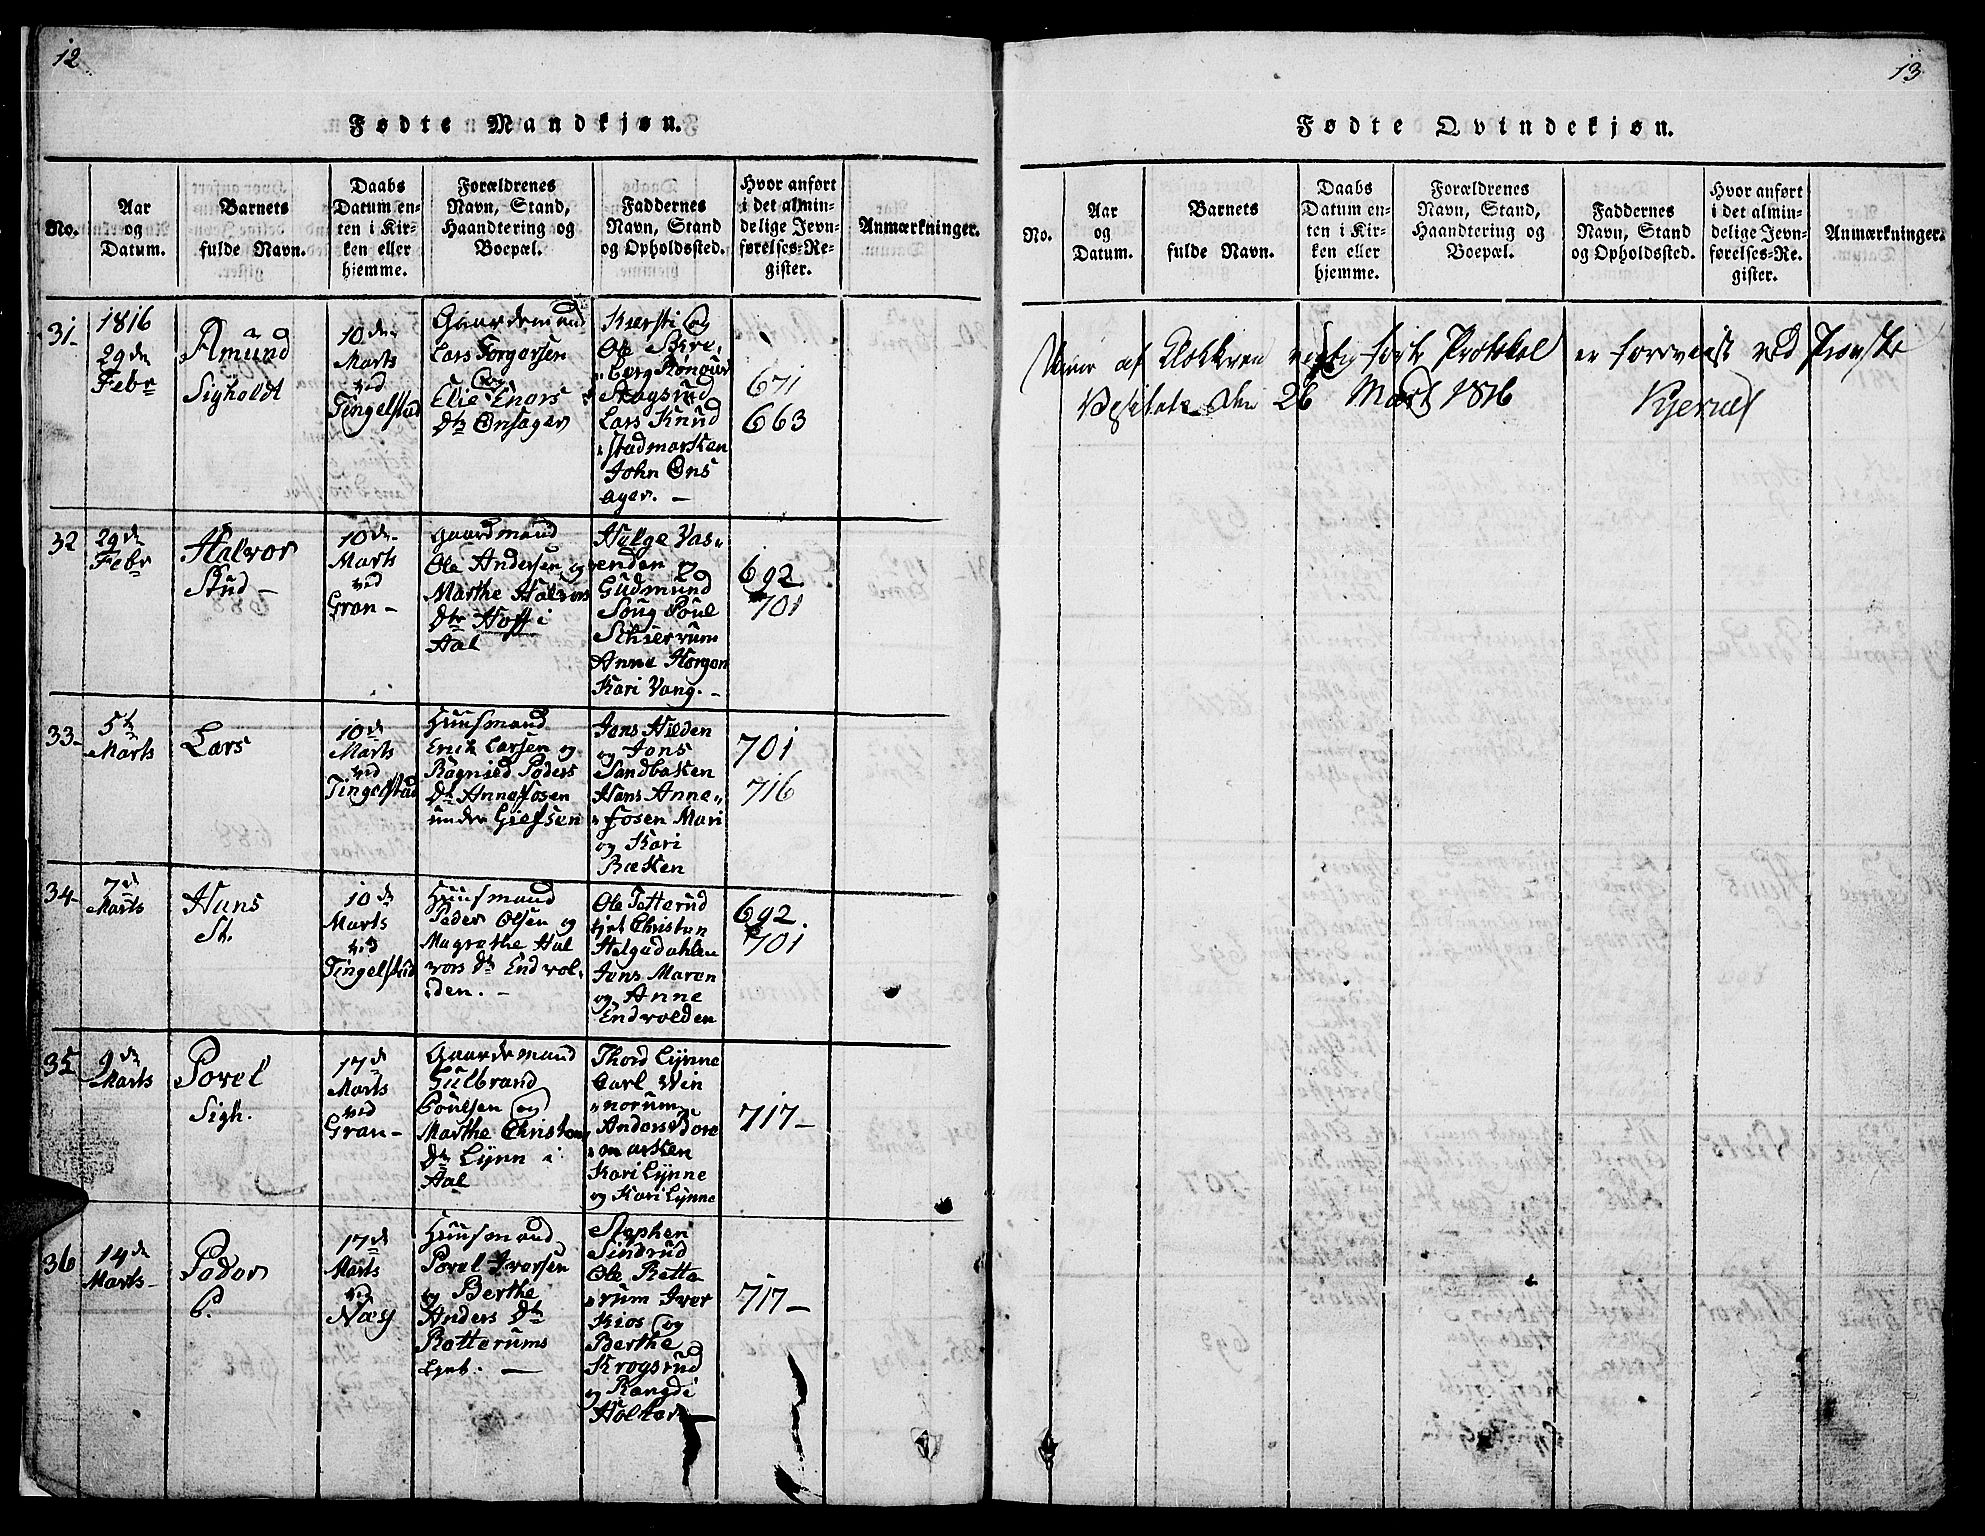 12
Fødte Mandkjøn.
No.
Aar
og
Datum.
Barnets
fulde Navn.
Daabs
Datum en-
ten i Kir-
ken eller
hjemme.
Forældrenes
Navn, Stand,
Haandtering og
Boepæl.
Faddernes
Navn, Stand
og Opholdssted.
Hvor anført
i det almin-
delige Jevn-
førelses-Re-
gister.
Anmærkninger.
31-
1816
29de
Febr
Amund
Sigholdt
10de
Marts
ved
Tingelstad
Gaardemand
Lars Torgersen
og
Elie Enors
Dtr Onsager
Kiersti og
Ole
Berg Rønnou
Skogsrud
Lars Knud
stadmarken
John Ons
ager. -
671
663
32
29de
Febr
Halvor
Stud -
10de
Marts
ved
Gran -
Gaardmand
Ole Andersen og
Marthe Halvors
Dtr Hoff i
Aal
Helge Vas
enden
Gudmund
Soug Poul
Schierrum
Anne Horgen
Kari Vang. -
692
701
33-
5te
Marts
Lars
10de
Marts
ved
Tingelstad
Huusmand
Erick Larsen og
Ragnild Peders
Dtr Annefosen
under Giefsen
Jons Hilden
og Jons
Sandbaken
Hans Anne
fosen Mari
og Kari
Bæken
701
716
34-
7de
Marts
Hans
St.
10de
Marts
ved
Tingelstad
Huusmand
Peder Olsen og
Magrethe Hal
vors Dtr Endvol
den. -
Ole Tetterud
Christen
Helgedahlen
Jens Maren
og Anne
Endvolden
692
701
35
9de
Marts
Povel
Sigh.
17de
Marts
ved
Gran -
Gaardemand
Gulbrand
Poulsen og
Marthe Christens
Dtr Lynn i
Aal
Thord Lynne
Carl Win
norum
Anders Dore
marken
Kari Lynne
og Kari Lynne
717-
36
14de
Marts-
Peder
P.
17de
Marts
ved
Næs
Huusmand
Povel Iversen
og Berthe
Anders Dtr
Rotterums
Eyet. -
Stephen
Sindrud
Ole Rotte
rum Iver
Kios og
Berthe
Krogsrud
og Rangdi
Holter -
717-
13
Fødte Qvindekjøn.
No.
Aar
og
Datum.
Barnets
fulde Navn.
Daabs
Datum en-
ten i Kir-
ken eller
hjemme.
Forældrenes
Navn, Stand,
Haandtering og
Boepæl.
Faddernes
Navn, Stand
og Opholdssted.
Hvor anført
i det almin-
delige Jevn-
førelses-Re-
gister.
Anmærkninger.
af Klokkeren rigtig førte Protokol er foreviist ved Provste
Visitats den 26 Marts 1816